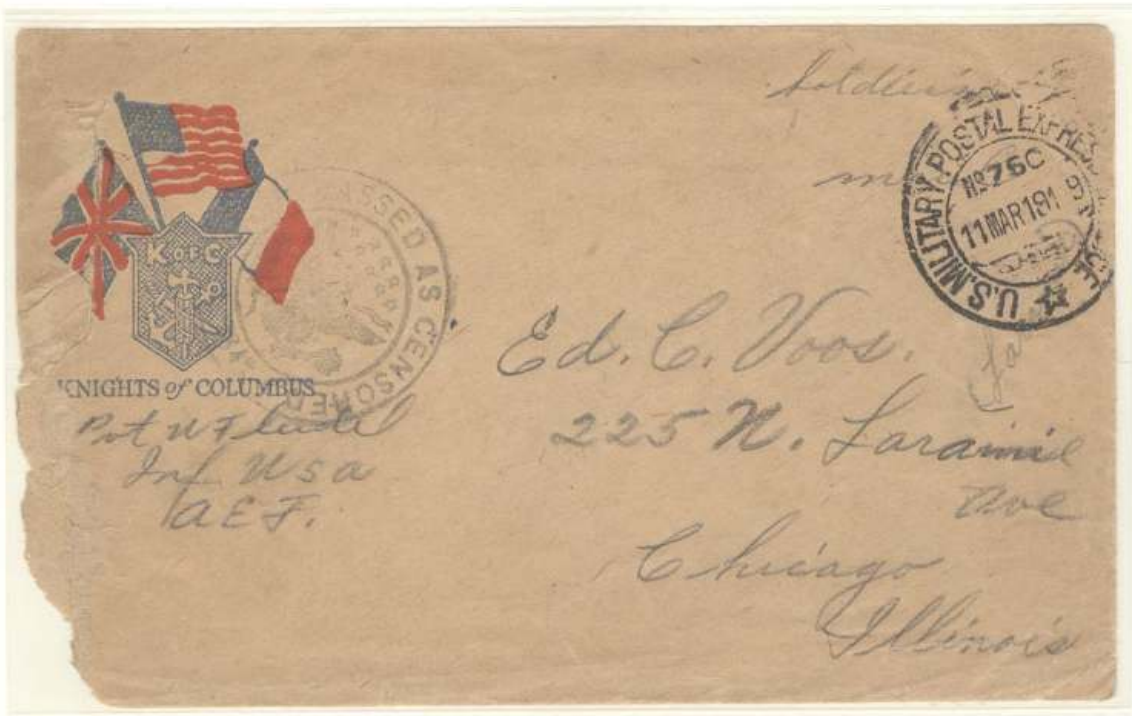 Soldier's
U.S. MILITARY POSTAL EXPRESS
No 76C
11 MAR 191
K OF C
PASSED AS CENSORED
KNIGHTS of COLUMBUS
Pvt
Inf USA
A E F.
Ed. C. Voos.
225 N. Laramie
Ave
Chicago
Illinois